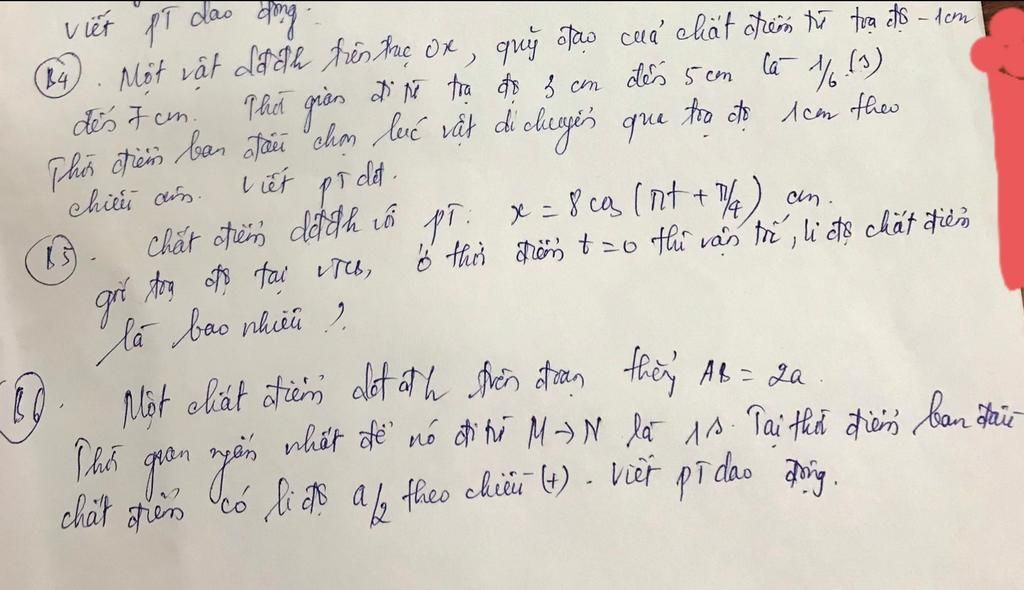 viết pT dao động.
B4. Một vật dđđh trên trục Ox, quỹ đạo của chất điểm từ toạ độ -1cm
đến 7 cm. Thời gian đi từ tọa độ 3 cm đến 5 cm là 1/6 (s)
Thời điểm ban đầu chọn lúc vật di chuyển qua tọa độ 1cm theo
chiều âm. Viết pT dđ.
B5. Chất điểm dđđh với pT: x = 8 cos (πt + π/4) cm.
gố toạ độ tại VTCB, ở thời điểm t = 0 thì vận trí, li độ chất điểm
là bao nhiêu ?
B6. Một chất điểm dđ đh trên đoạn thẳng AB = 2a.
Thời gian ngắn nhất để nó đi từ M → N là 1s. Tại thời điểm ban đầu
chất điểm có li độ a/2 theo chiều (+). Viết pT dao động.